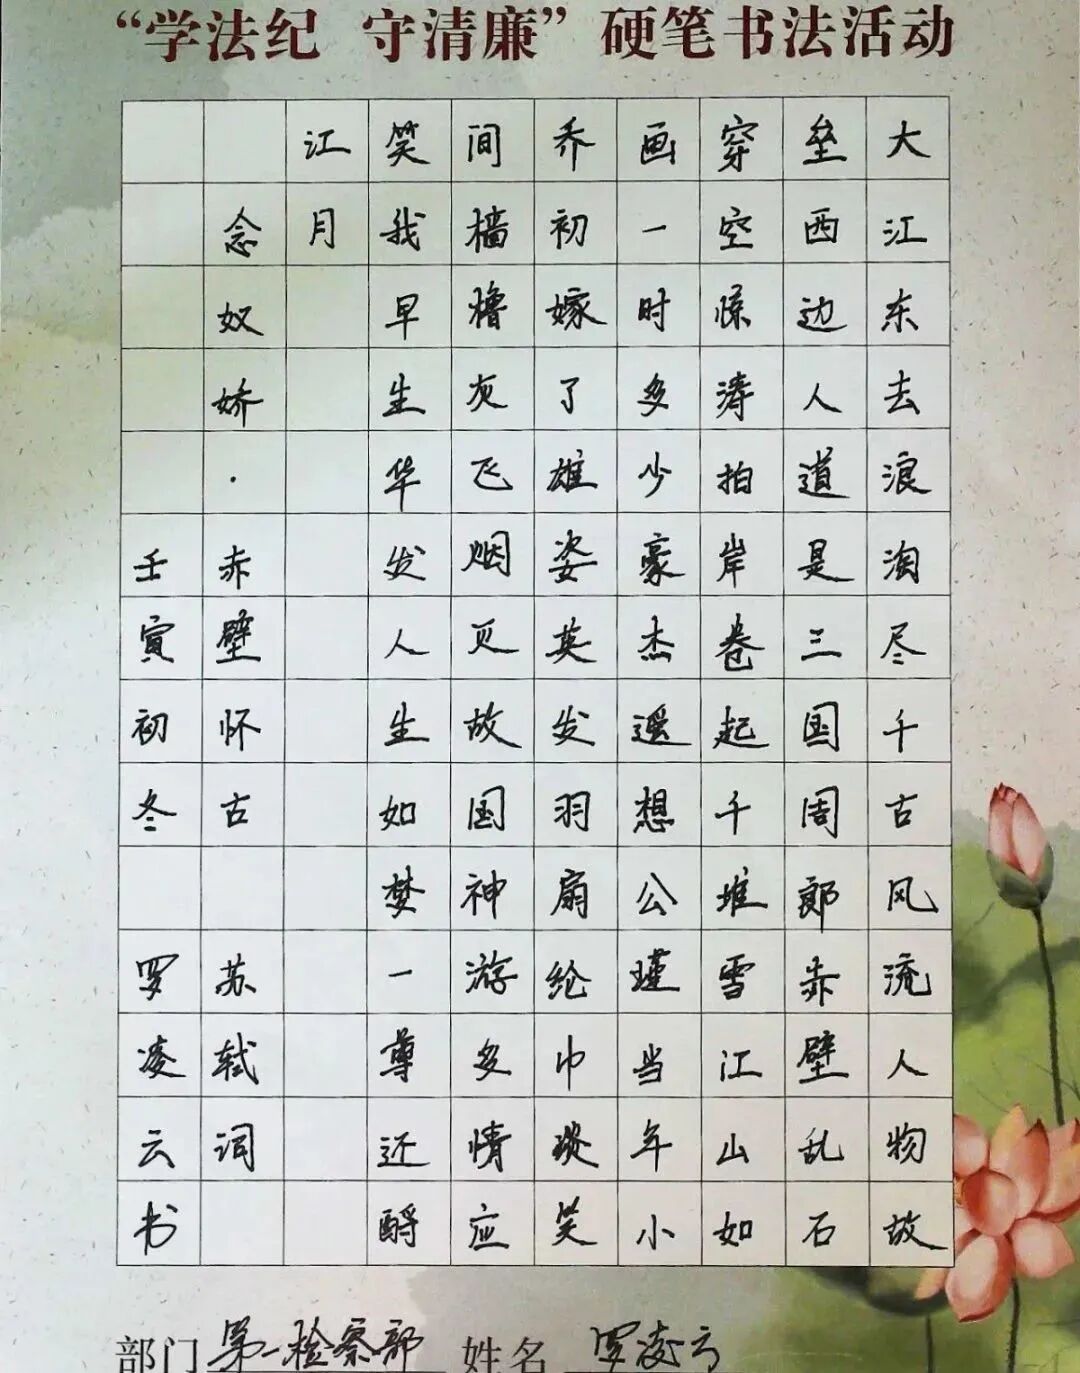 “学法纪 守清廉”硬笔书法活动
大江东去浪淘尽千古风流人物故
垒西边人道是三国周郎赤壁乱石
穿空惊涛拍岸卷起千堆雪江山如
画一时多少豪杰遥想公瑾当年小
乔初嫁了雄姿英发羽扇纶巾谈笑
间樯橹灰飞烟灭故国神游多情应
笑我早生华发人生如梦一尊还酹
江月
念奴娇·赤壁怀古 苏轼词
壬寅初冬 罗凌云书
部门 第一检察部 姓名 罗凌云